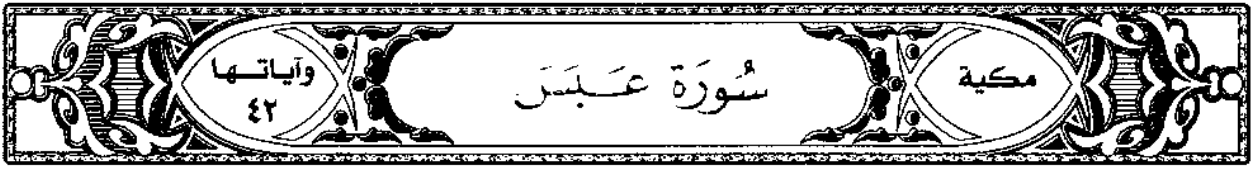 مكية
سُورَة عَبَسَ
وآياتها
٤٢